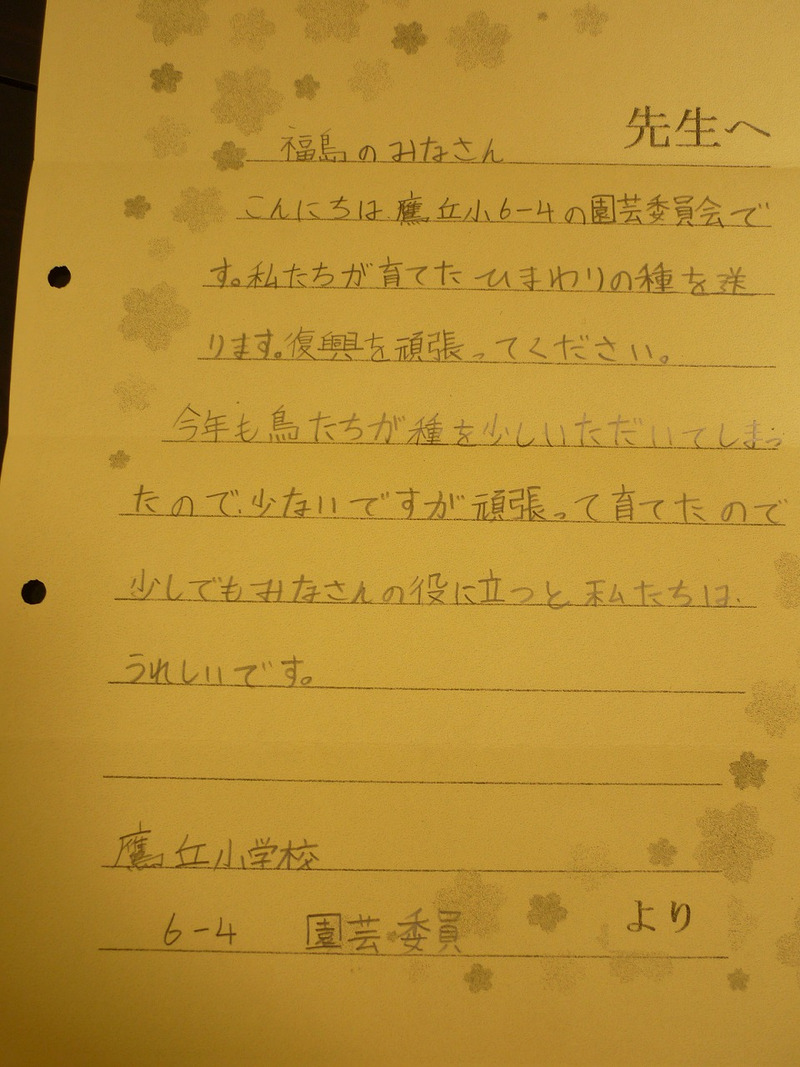 先生へ
福島のみなさん
こんにちは、鷹丘小6-4の園芸委員会で
す。私たちが育てたひまわりの種を送
ります。復興を頑張ってください。
今年も鳥たちが種を少しいただいてしまっ
たので、少ないですが頑張って育てたので
少しでもみなさんの役に立つと私たちは、
うれしいです。
鷹丘小学校
6-4 園芸委員
より